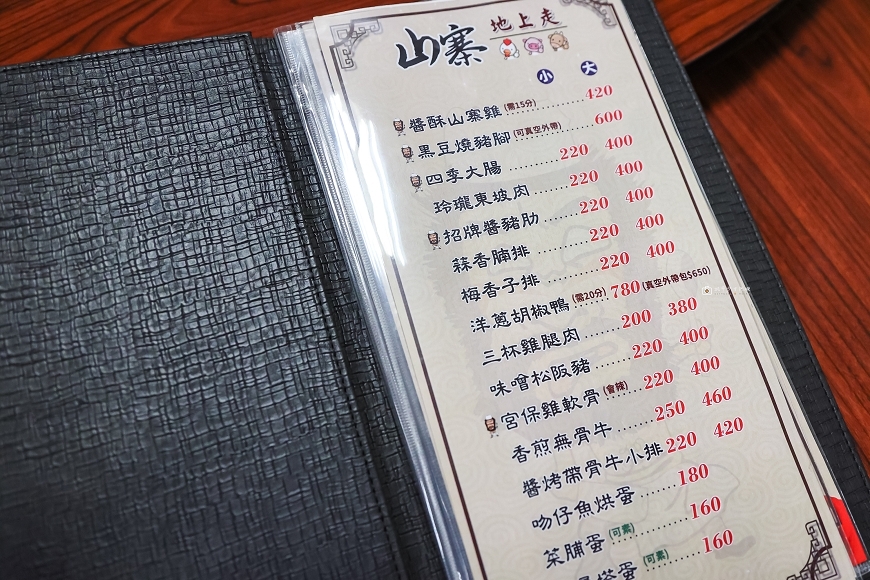 山寨 地上走
小 大
醬酥山寨雞(需15分)..........420
黑豆燒豬腳(可真空外帶).......600
四季大腸........220 400
玲瓏東坡肉......220 400
招牌醬豬肋......220 400
蒜香腩排........220 400
梅香子排........220 400
洋蔥胡椒鴨(需20分)780(真空外帶包$650)
三杯雞腿肉......200 380
味噌松阪豬......220 400
宮保雞軟骨(會辣)220 400
香煎無骨牛......250 460
醬烤帶骨牛小排220 420
吻仔魚烘蛋......180
菜脯蛋(可素)......160
塔蛋(可素)......160